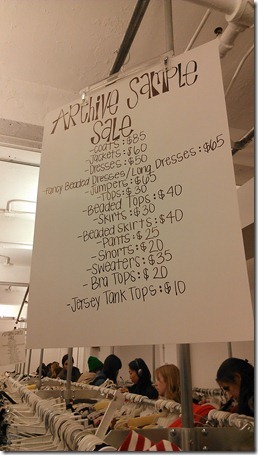 ARCHIVE SAMPLE
SALE
-COATS: $85
-JACKETS: $60
-DRESSES: $50
-FANCY BEADED DRESSES/LONG DRESSES: $65
-JUMPERS: $65
-TOPS: $30
-BEADED TOPS: $40
-SKIRTS: $30
-BEADED SKIRTS: $40
-PANTS: $25
-SHORTS: $20
-SWEATERS: $35
-BRA TOPS: $20
-JERSEY TANK TOPS: $10